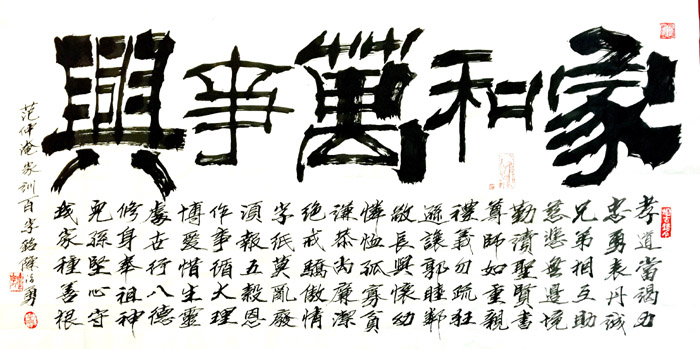 家和萬事興
孝道當竭力
忠勇表丹誠
兄弟相互助
慈悲無邊境
勤讀聖賢書
尊師如重親
禮義勿疏狂
遜讓敦睦鄰
敬長與懷幼
憐恤孤寡貧
謙恭尚廉潔
絕戒驕傲情
字紙莫亂廢
須報五穀恩
作事循天理
博愛惜生靈
處世行八德
修身奉祖神
兒孫堅心守
我家種善根
范仲淹家訓百字銘陳